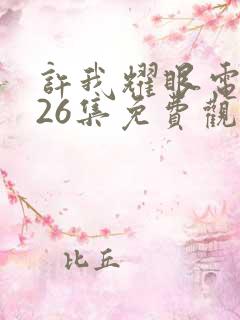 許我耀眼電
26集免費觀
比丘